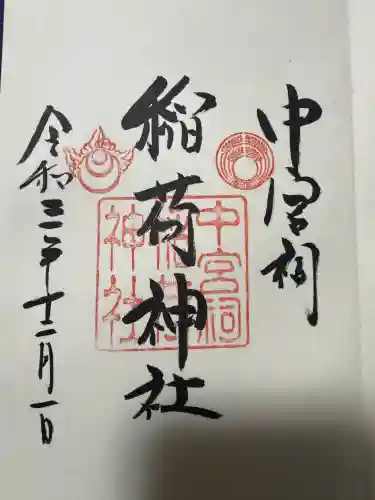 中宮祠
稲荷神社
令和三年十二月一日
中宮祠
稲荷
神社